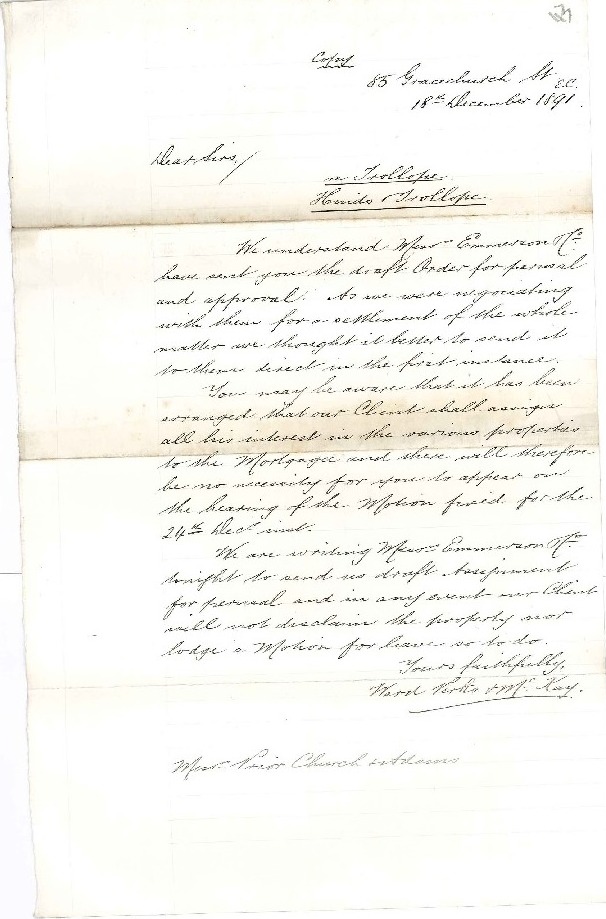 Copy
85 Gracechurch St E.C.
18th December 1891.
Dear Sirs,/
re Trollope
Hinds v Trollope
We understand Messrs Emmerson & Co.
have sent you the draft Order for perusal
and approval. As we were negociating
with them for a settlement of the whole
matter we thought it better to send it
to them direct in the first instance.
You may be aware that it has been
arranged that our Client shall assign
all his interest in the various properties
to the Mortgagee and there will therefore
be no necessity for you to appear on
the hearing of the Motion fixed for the
24th Decr inst.
We are writing Messrs Emmerson & Co.
tonight to send us draft Assignment
for perusal and in any event our Client
will not disclaim the property nor
lodge a Motion for leave so to do.
Yours faithfully,
Ward Perks & McKay.
Messrs Prior Church & Adams